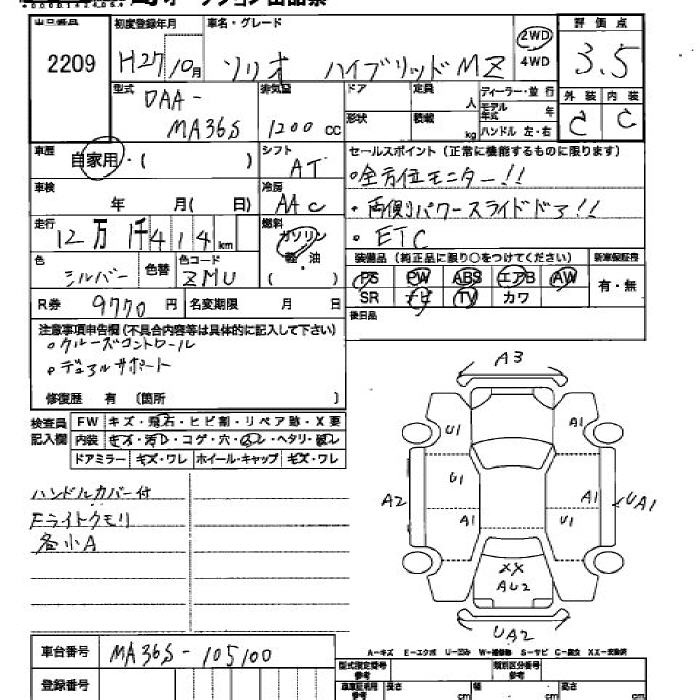 出品番号 初度登録年月 車名・グレード 評価点
2209 H27/10月 ソリオ ハイブリッドMZ 2WD 4WD 3.5
型式 DAA- MA36S 排気量 1200 CC ドア 形状 定員 人 積載 kg ディーラー・並行 モデル年式 年 ハンドル 左・右 外装 C 内装 C
車歴 自家用・( ) シフト AT セールスポイント(正常に機能するものに限ります)
・全方位モニター!!
車検 年 月( 日) 冷房 AAC
・両側パワースライドドア!!
走行 12万1千414km 燃料 ガソリン 軽・油 ( )
・ETC
色 シルバー 色替 色コード ZMU
装備品(純正品に限り○をつけてください) 新車保証書
PS PW ABS エアB AW 有・無
SR ナビ TV カワ
R券 9770円 名変期限 月 日
後日品
注意事項申告欄(不具合内容等は具体的に記入して下さい)
・クルーズコントロール
・デュアルサポート
修復歴 有 〔箇所 〕
検査員記入欄 FW キズ・飛石・ヒビ割・リペア跡・X要
内装 キズ・汚レ・コゲ・穴・
・ヘタリ・
ドアミラー キズ・ワレ ホイール・キャップ キズ・ワレ
ハンドルカバー付
Fライトクモリ
各小A
A3
U1 A1
U1
A2 A1 UA1
A1 U1
XX
AU2
UA2
車台番号 MA36S-105100
A-キズ E-エクボ U-凹み W-補修跡 S-サビ C-腐食 XX-交換済
登録番号
型式指定番号 参考 類別区分番号 参考
長さ cm 幅 cm 高さ cm